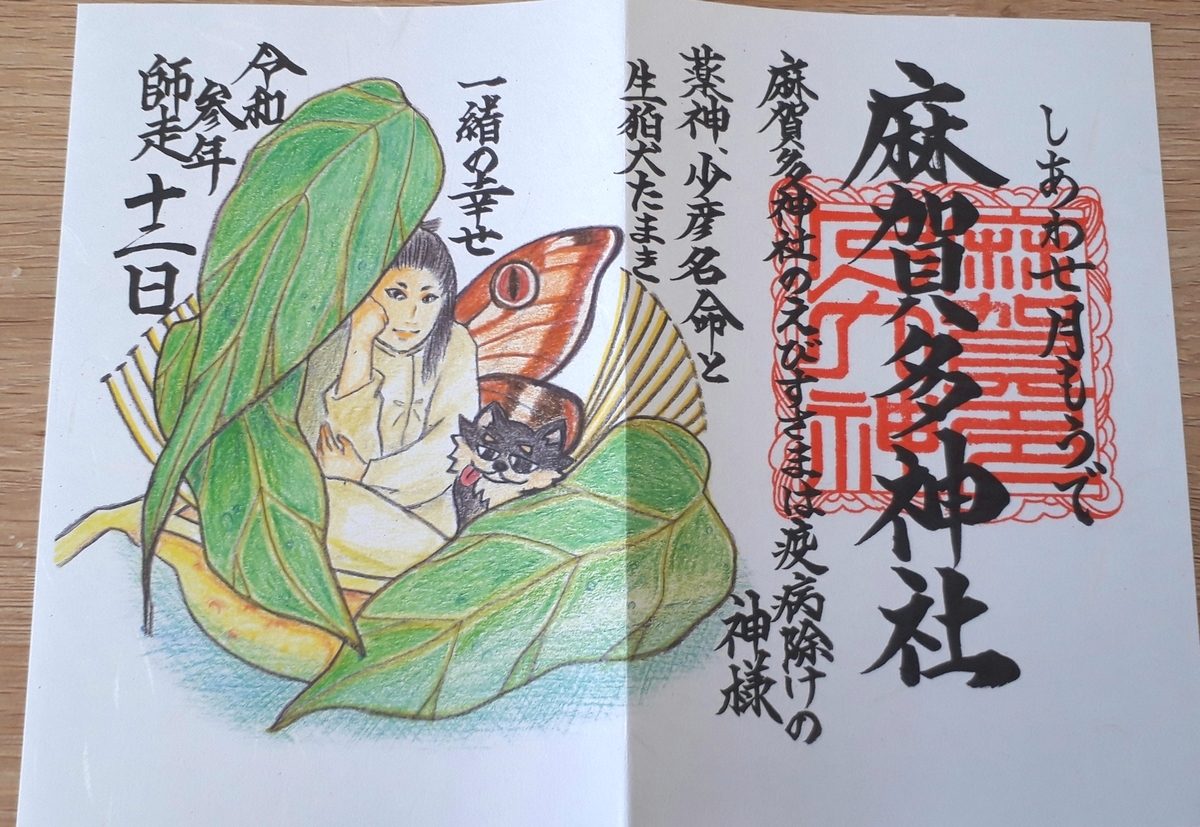 しあわせ月もうで
麻賀多神社
麻賀多神社のえびすさまは疫病除けの
神様
薬神、少彦名命と
生狛犬たまき
一緒の幸せ
令和
参年
師走
十二日